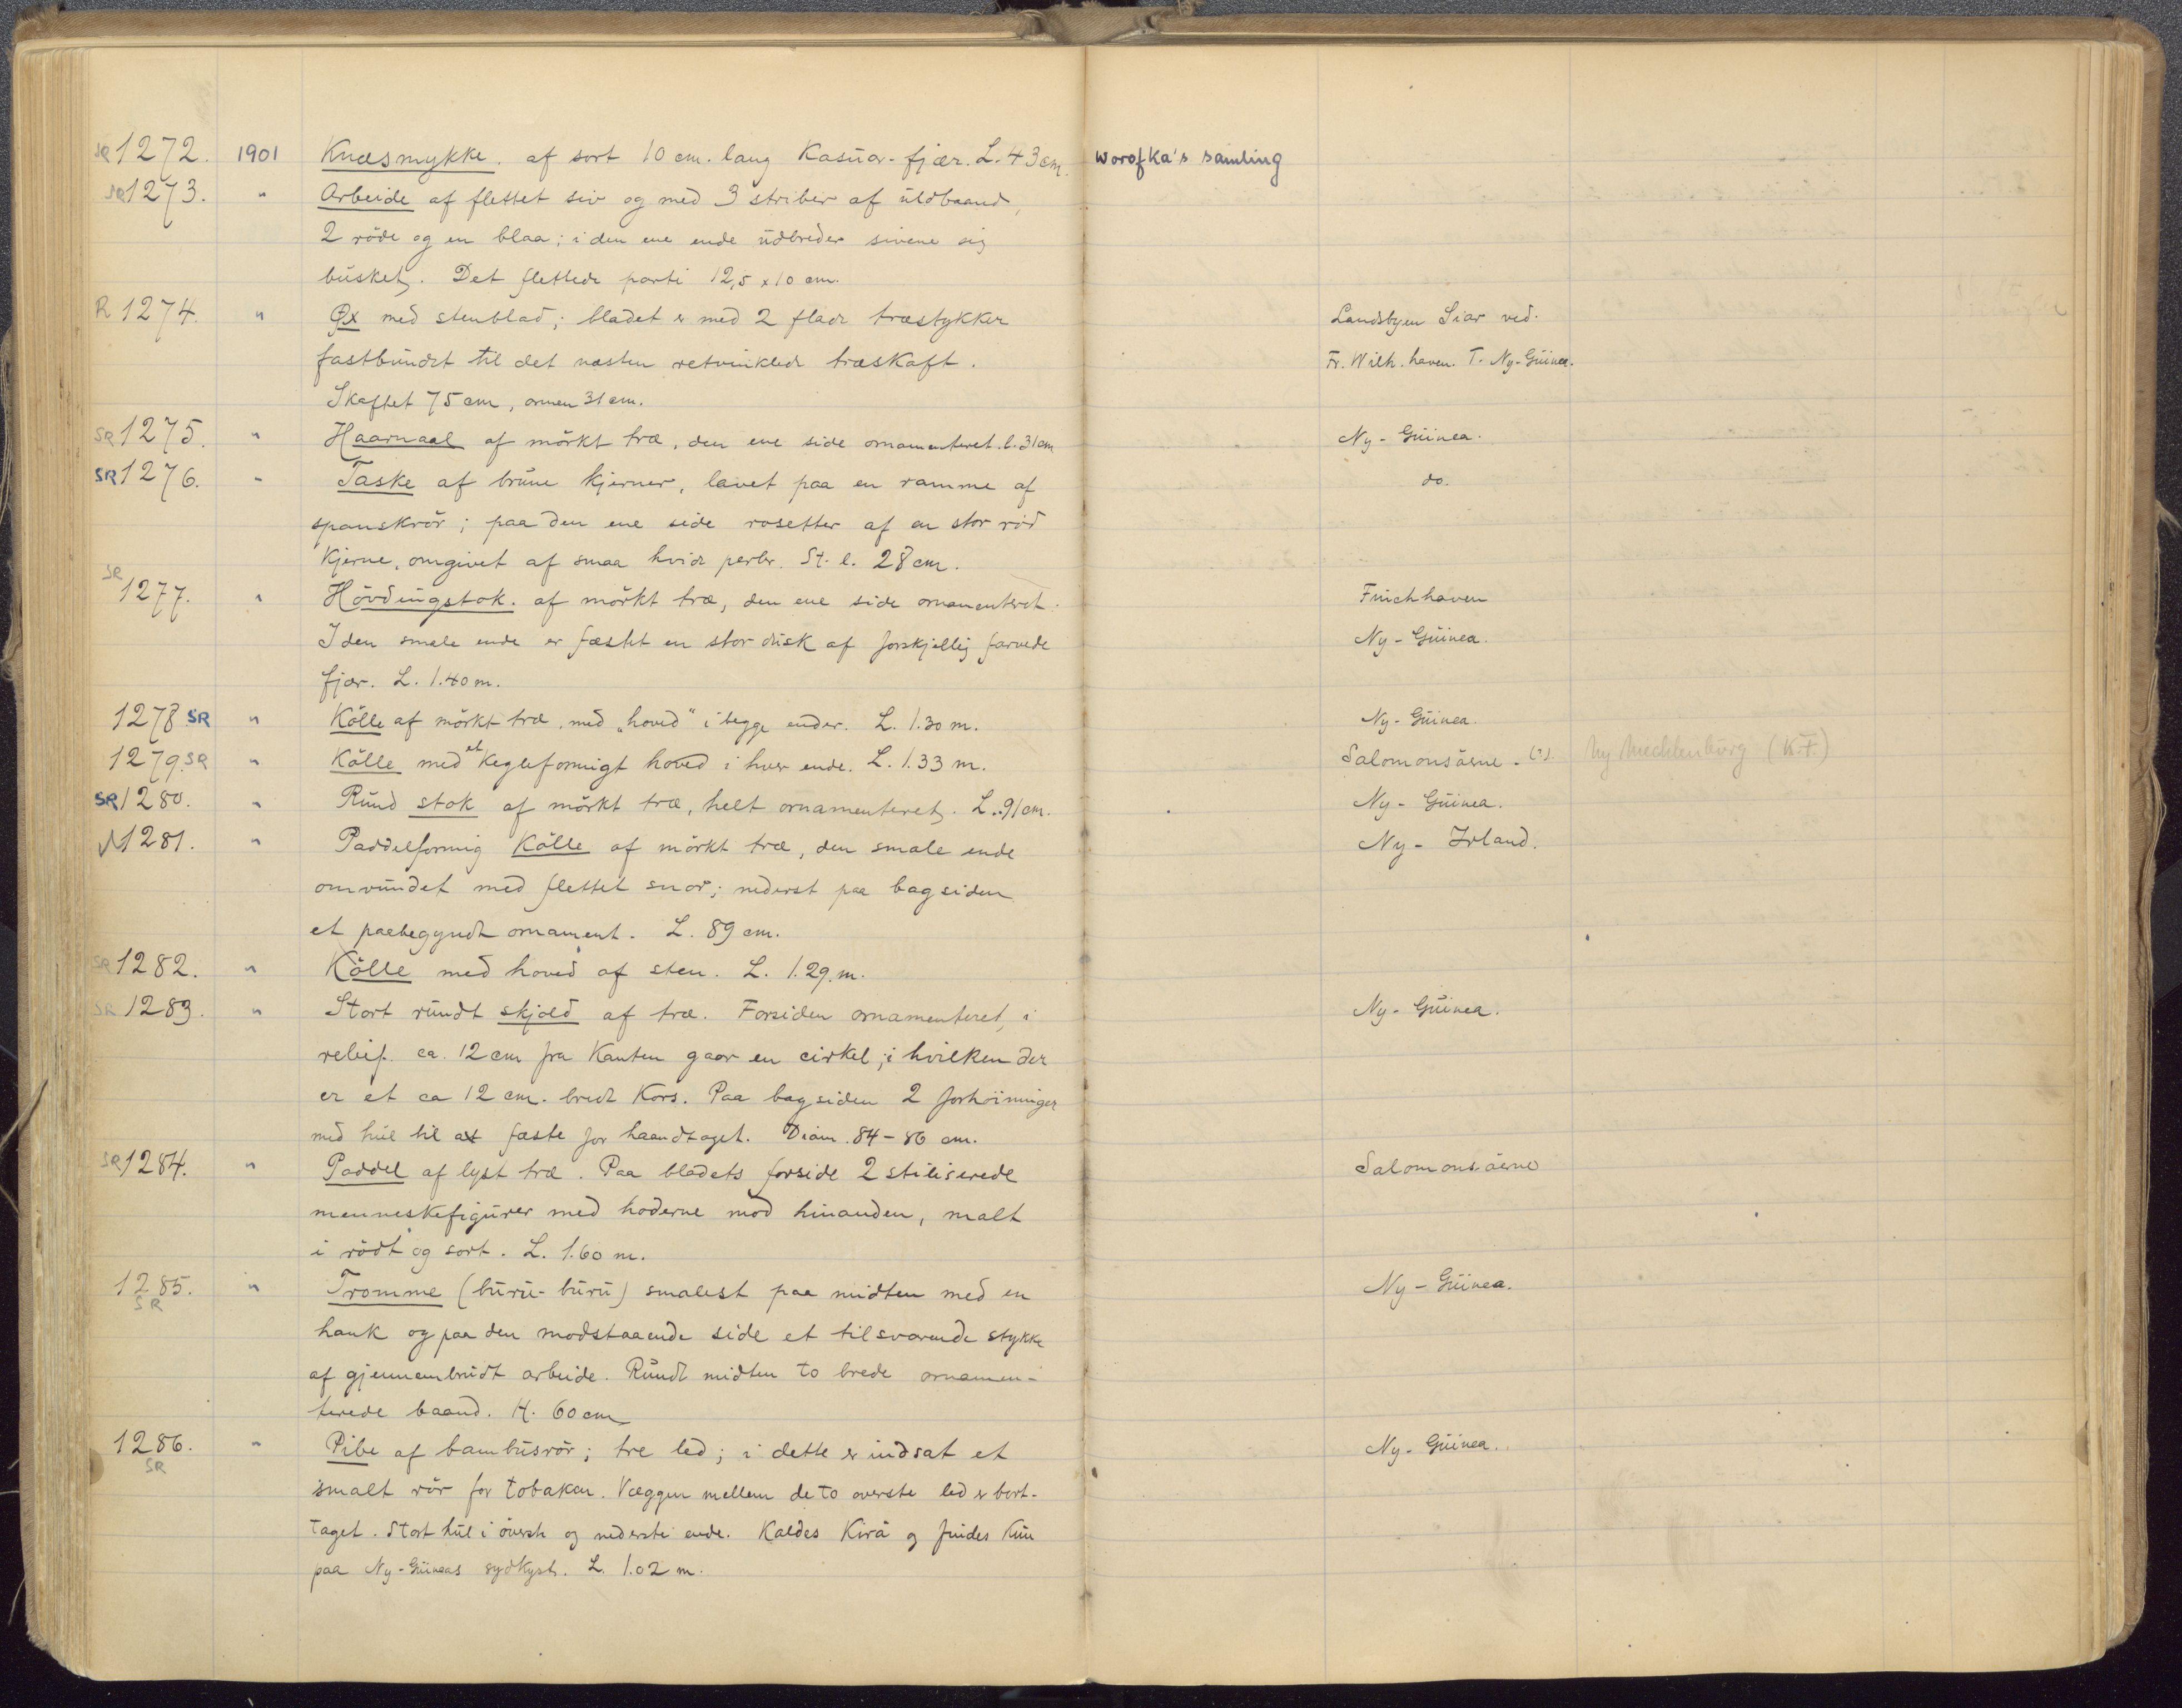 SR 1272. 1901 Knæsmykke. af sort 10 cm. lang Kasuar-fjær. L. 43 cm. Worofka's samling
SR 1273. " Arbeide af flettet siv og med 3 striber af uldbaand,
2 röde og en blaa; i den ene ende udbreder sivene sig
busket. Det flettede parti 12,5 x 10 cm.
R 1274. " Øx med stenblad; bladet er med 2 flade træstykker Landsbyen Siar ved.
fastbundet til det næsten retvinklede træskaft. Fr. Wilh. haven. T. Ny-Guinea.
Skaftet 75 cm, armen 31 cm.
SR 1275. " Haarnaal af mörkt træ, den ene side ornamenteret. l. 31 cm Ny-Guinea.
SR 1276. " Taske af brune kjerner, lavet paa en ramme af do.
spanskrör; paa den ene side rosetter af en stor röd
Kjerne, omgivet af smaa hvide perler. St. l. 28 cm.
SR 1277. " Hövdingstok. af mörkt træ, den ene side ornamenteret. Finchhaven
I den smale ende er fæstet en stor dusk af forskjellig farvede Ny-Guinea.
fjær. L. 1.40 m.
1278 SR " Kölle af mörkt træ, med „hoved" i begge ender. L. 1.30 m. Ny-Guinea.
1279. SR " Kölle med et Kegleformigt hoved i hver ende. L. 1.33 m. Salomonsöerne. (?). Ny Mecklenburg (K.F)
SR 1280. " Rund stok af mörkt træ, helt ornamenteret. L. 91 cm. Ny-Guinea.
1281. " Paddelformig Kölle af mörkt træ, den smale ende Ny-Irland.
omvundet med flettet snor; nederst paa bagsiden
et paabegyndt ornament. L. 89 cm.
SR 1282. " Kölle med hoved af sten. L. 1.29. m.
SR 1283. " Stort rundt skjold af træ. Forsiden ornamenteret, i Ny-Guinea.
relief. ca. 12 cm fra Kanten gaar en cirkel, i hvilken der
er et ca 12 cm. bredt Kors. Paa bagsiden 2 forhöininger
med hul til at fæste for haandtaget. Diam. 84-86 cm.
SR 1284. " Paddel af lyst træ. Paa bladets forside 2 stiliserede Salomonsöerne
menneskefigurer med hoderne mod hinanden, malt
i rödt og sort. L. 1.60 m.
1285. SR " Tromme (buru-buru) smalest paa midten med en Ny-Guinea.
hank og paa den modstaaende side et tilsvarende stykke
af gjennembrudt arbeide. Rundt midten to brede ornamen-
terede baand. H. 60 cm
1286. SR " Pibe af bambusrör; tre led; i dette er indsat et Ny-Guinea.
smalt rör for tobaken. Væggen mellem de to øverste led er bort-
taget. Stort hul i överste og nederste ende. Kaldes Kirá og findes kun
paa Ny-Guineas sydkyst. L. 1.02 m.